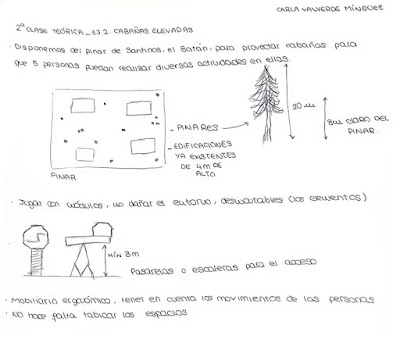 CARLA VALVERDE MÍNGUEZ
2ª CLASE TEÓRICA_EJ.2. CABAÑAS ELEVADAS
· Disponemos del pinar de Santinos, el Batán, para proyectar cabañas para
que 5 personas puedan realizar diversas actividades en ellas.
20 m
8m CLARO DEL
PINAR.
- PINARES
- EDIFICACIONES
YA EXISTENTES
DE 4m DE
ALTO
PINAR
· Jugar con módulos, no dañar el entorno, desmontables (los elementos)
MÍN 3m
Pasarelas o escaleras para el acceso
· Mobiliario ergonómico, tener en cuenta los movimientos de las personas
· No hace falta tabicar los espacios